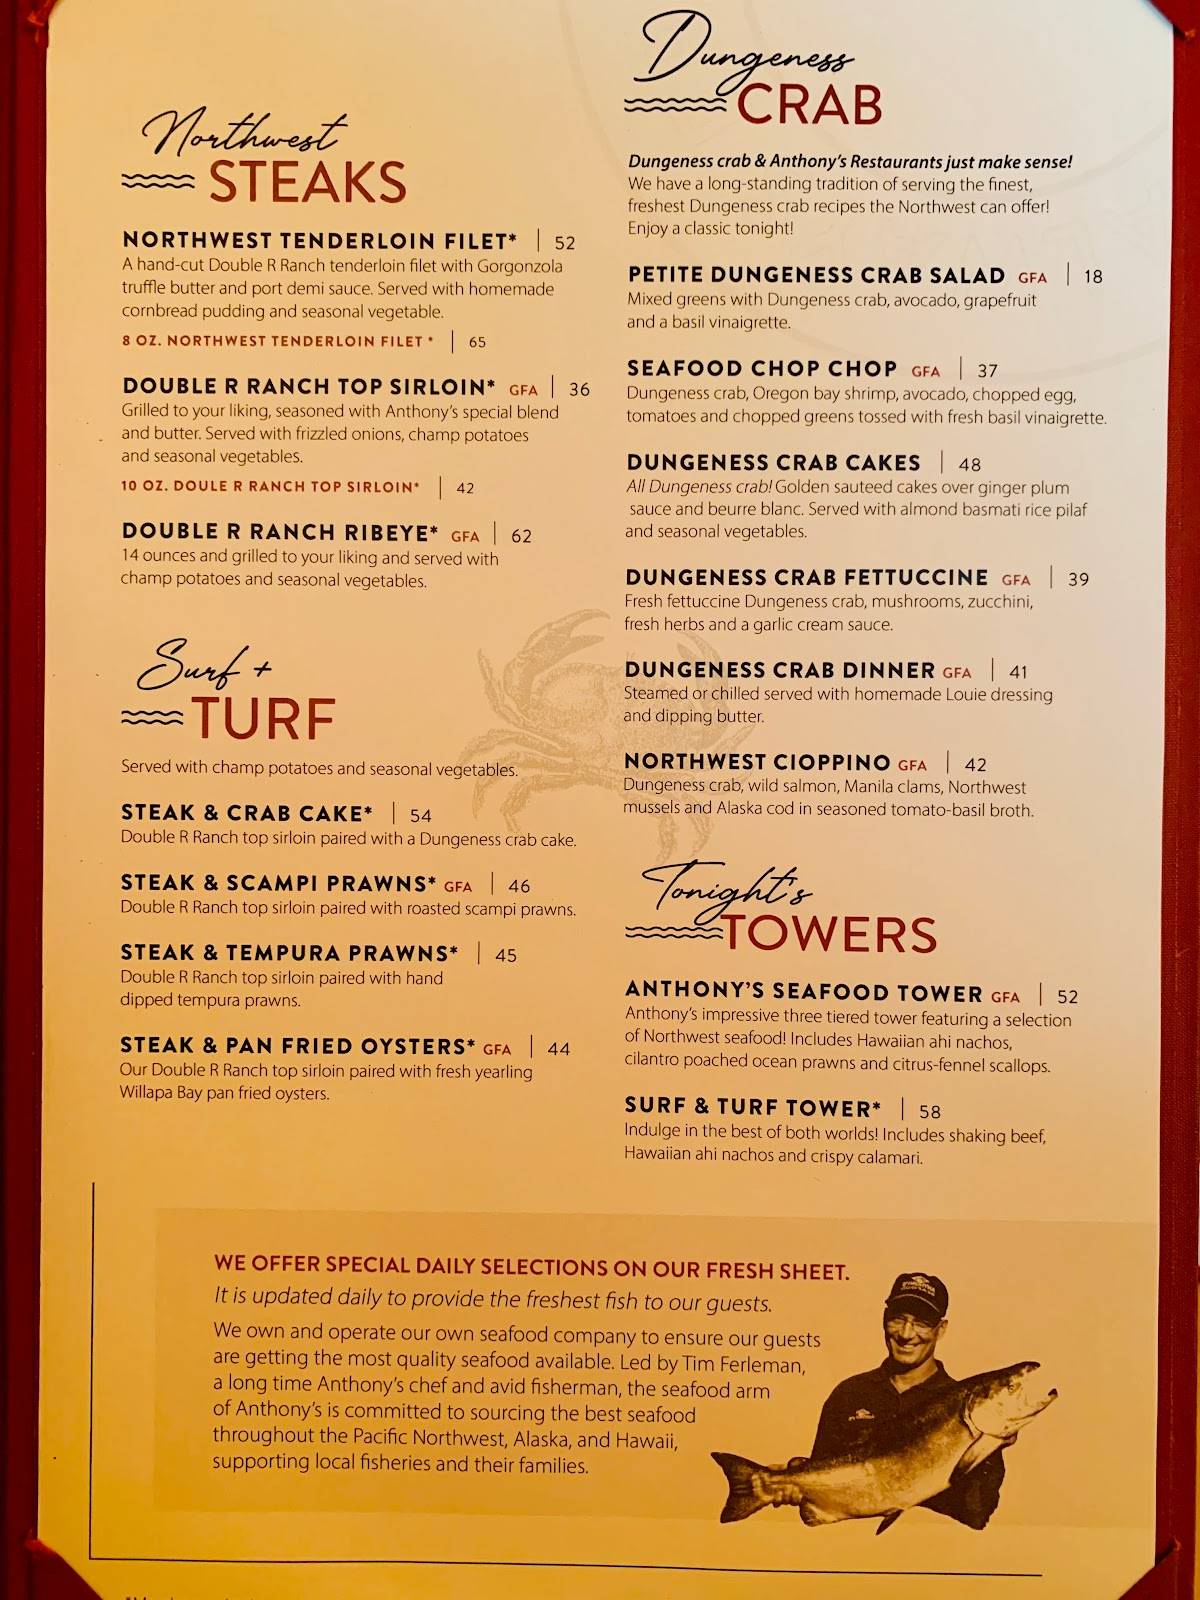 Northwest
STEAKS
NORTHWEST TENDERLOIN FILET* | 52
A hand-cut Double R Ranch tenderloin filet with Gorgonzola
truffle butter and port demi sauce. Served with homemade
cornbread pudding and seasonal vegetable.
8 OZ. NORTHWEST TENDERLOIN FILET * | 65
DOUBLE R RANCH TOP SIRLOIN* GFA | 36
Grilled to your liking, seasoned with Anthony's special blend
and butter. Served with frizzled onions, champ potatoes
and seasonal vegetables.
10 OZ. DOULE R RANCH TOP SIRLOIN* | 42
DOUBLE R RANCH RIBEYE* GFA | 62
14 ounces and grilled to your liking and served with
champ potatoes and seasonal vegetables.
Surf +
TURF
Served with champ potatoes and seasonal vegetables.
STEAK & CRAB CAKE* | 54
Double R Ranch top sirloin paired with a Dungeness crab cake.
STEAK & SCAMPI PRAWNS* GFA | 46
Double R Ranch top sirloin paired with roasted scampi prawns.
STEAK & TEMPURA PRAWNS* | 45
Double R Ranch top sirloin paired with hand
dipped tempura prawns.
STEAK & PAN FRIED OYSTERS* GFA | 44
Our Double R Ranch top sirloin paired with fresh yearling
Willapa Bay pan fried oysters.
Dungeness
CRAB
Dungeness crab & Anthony's Restaurants just make sense!
We have a long-standing tradition of serving the finest,
freshest Dungeness crab recipes the Northwest can offer!
Enjoy a classic tonight!
PETITE DUNGENESS CRAB SALAD GFA | 18
Mixed greens with Dungeness crab, avocado, grapefruit
and a basil vinaigrette.
SEAFOOD CHOP CHOP GFA | 37
Dungeness crab, Oregon bay shrimp, avocado, chopped egg,
tomatoes and chopped greens tossed with fresh basil vinaigrette.
DUNGENESS CRAB CAKES | 48
All Dungeness crab! Golden sauteed cakes over ginger plum
sauce and beurre blanc. Served with almond basmati rice pilaf
and seasonal vegetables.
DUNGENESS CRAB FETTUCCINE GFA | 39
Fresh fettuccine Dungeness crab, mushrooms, zucchini,
fresh herbs and a garlic cream sauce.
DUNGENESS CRAB DINNER GFA | 41
Steamed or chilled served with homemade Louie dressing
and dipping butter.
NORTHWEST CIOPPINO GFA | 42
Dungeness crab, wild salmon, Manila clams, Northwest
mussels and Alaska cod in seasoned tomato-basil broth.
Tonight's
TOWERS
ANTHONY'S SEAFOOD TOWER GFA | 52
Anthony's impressive three tiered tower featuring a selection
of Northwest seafood! Includes Hawaiian ahi nachos,
cilantro poached ocean prawns and citrus-fennel scallops.
SURF & TURF TOWER* | 58
Indulge in the best of both worlds! Includes shaking beef,
Hawaiian ahi nachos and crispy calamari.
WE OFFER SPECIAL DAILY SELECTIONS ON OUR FRESH SHEET.
It is updated daily to provide the freshest fish to our guests.
We own and operate our own seafood company to ensure our guests
are getting the most quality seafood available. Led by Tim Ferleman,
a long time Anthony's chef and avid fisherman, the seafood arm
of Anthony's is committed to sourcing the best seafood
throughout the Pacific Northwest, Alaska, and Hawaii,
supporting local fisheries and their families.